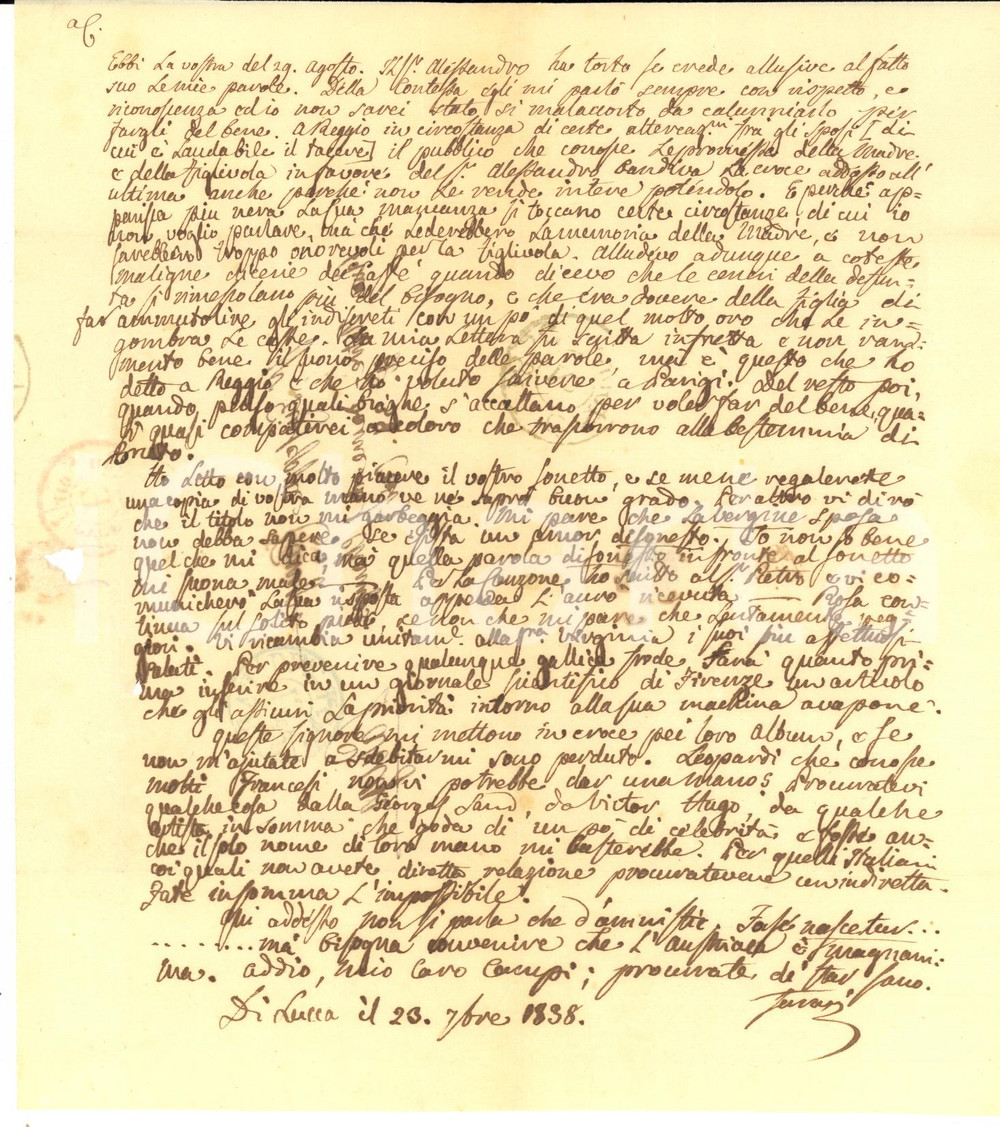 aC.
Ebbi La vostra del 29. Agosto. Il Sr. Alessandro ha torto se crede allusive al fatto
suo Le mie parole. Della Contessa egli mi parlò sempre con rispetto, e
riconoscenza ed io non sarei stato sì malaccorto da calunniarlo per
fargli del bene. A Reggio in circostanza di certe altercazni. fra gli Sposi [di
cui è Laudabile il tacere] il pubblico che conosce Le promesse della Madre
e della Figlivola in favore del Sr. Alessandro bandiva La croce addosso all'
ultima anche perchè non Le rende intere potendolo. E perchè ap-
parisca più nera La sua mancanza si toccano certe circostanze di cui io
non voglio parlare, ma che Lederebbero La memoria della Madre, e non
sarebbero troppo onorevoli per la Figlivola. Alludevo adunque a coteste
maligne dicerie dei Caffè quando dicevo che le ceneri della defun-
ta si rimescolano più del bisogno, e che era dovere della figlia di
far ammutolire gli indiscreti con un pò di quel molto oro che Le in-
gombra Le casse. La mia Lettera fu scritta in fretta e non ram-
mento bene il suono preciso delle parole, ma è questo che ho
detto a Reggio e che ho voluto scrivere a Parigi. Del resto poi,
quando penso quali brighe s'accattano per voler far del bene, qua-
si quasi compatirei a coloro che trascorrono alla bestemmia di
Bruto.
Ho Letto con molto piacere il vostro sonetto, e se me ne regalerete
una copia di vostra mano ve ne saprò buon grado. Per altro vi dirò
che il titolo non mi garbeggia. Mi pare che La vergine sposa
non debba sapere se esista un amor disonesto. Io non so bene
quel che mi dica, ma quella parola disonesto in fronte al sonetto
mi suona male. — La Canzone ho inviato al Sr. Pietro e vi co-
municherò La sua risposta appena L'avrò ricevuta — Rosa con-
tinua sul solito piede, se non che mi pare che Lentamente peg-
giori. Vi ricambia unitamte. alla Sra. Virginia i suoi più affettuosi
saluti. Per prevenire qualunque gallica frode farà quanto pri-
ma inserire in un giornale scientifico di Firenze un articolo
che gli assicuri La priorità intorno alla sua macchina a vapore.
Queste Signore mi mettono in croce pei loro album, e se
non m'ajutate a sdebitarmi sono perduto. Leopardi che conosce
molti Francesi non vi potrebbe dar una mano? Procuratevi
qualche cosa dalla Georges Sand, da Victor Hugo, da qualche
artista in somma che goda di un pò di celebrità e fosse an-
che il solo nome di loro mano mi basterebbe. Per quelli Italiani
coi quali non avete diretta relazione procuratevene un indiretta.
Fate insomma L'impossibile.
Qui addesso non si parla che d'amnistie. Fasc nascetur...
........ma bisogna convenire che L'Austriaca è magnani-
ma. Addio, mio caro Campi; procurate di star sano.
Di Lucca il 23. 7bre 1838.